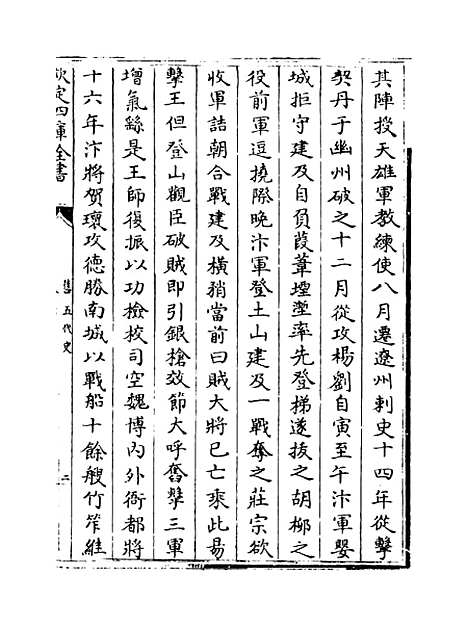 其陣授天雄軍教練使八月遷遼州刺史十四年從擊
契丹于幽州破之十二月從攻楊劉自寅至午汴軍嬰
城拒守建及自負葭葦堙塹率先登梯遂拔之胡柳之
役前軍逗撓際晚汴軍登土山建及一戰奪之莊宗欲
收軍詰朝合戰建及橫矟當前曰賊大將已亡乘此易
擊王但登山觀臣破賊即引銀槍效節大呼奮擊三軍
增氣繇是王師復振以功檢校司空魏博內外衙都將
十六年汴將賀瓌攻德勝南城以戰船十餘艘竹笮維
欽定四庫全書
舊五代史
二